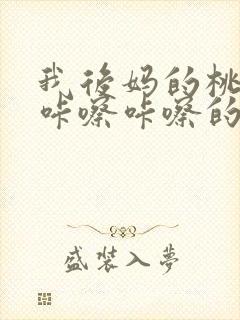 我後妈的桃
咔嚓咔嚓的
盛裝入夢